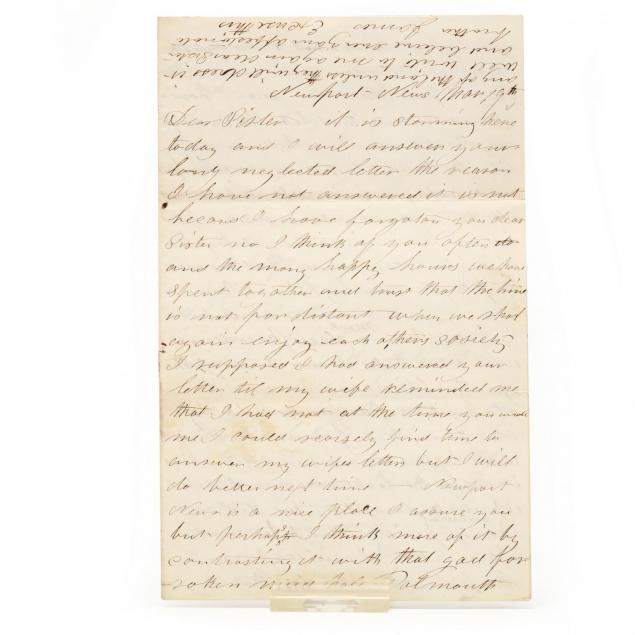 any of the land unless they will dress it
will write to me again dear Sister
and believe ever your affectionate
brother James Excuse this
Newport-News Mar 19th
Dear Sister it is storming here
today and I will answer your
long neglected letter the reason
I have not answered it is not
becaus I have forgoton you dear
Sister no I think of you often
and the many happy hours we have
spent together and trust that the time
is not far distant when we shal
again enjoy each others society
I supposed I had answered your
letter til my wife reminded me
that I had not at the time you wrote
me I could scarsely find time to
answer my wifes letters but I will
do better next time — Newport
News is a nice place I assure you
but perhaps I think more of it by
contrasting it with that god for
saken mud hole Falmouth